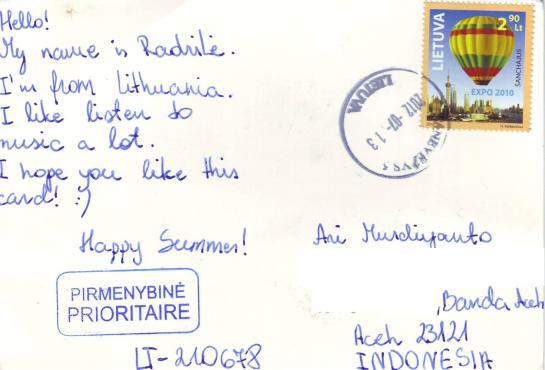 Hello!
My name is Radvilė.
I'm from Lithuania.
I like listen to
music a lot.
I hope you like this
card! :)
Happy Summer!
PIRMENYBINĖ
PRIORITAIRE
LT-210678
LIETUVA
2 90 Lt
ŠANCHAJUS
EXPO 2010
LIETUVA
2012-07-13
Ari Murdiyanto
,Banda Aceh
Aceh 23121
INDONESIA